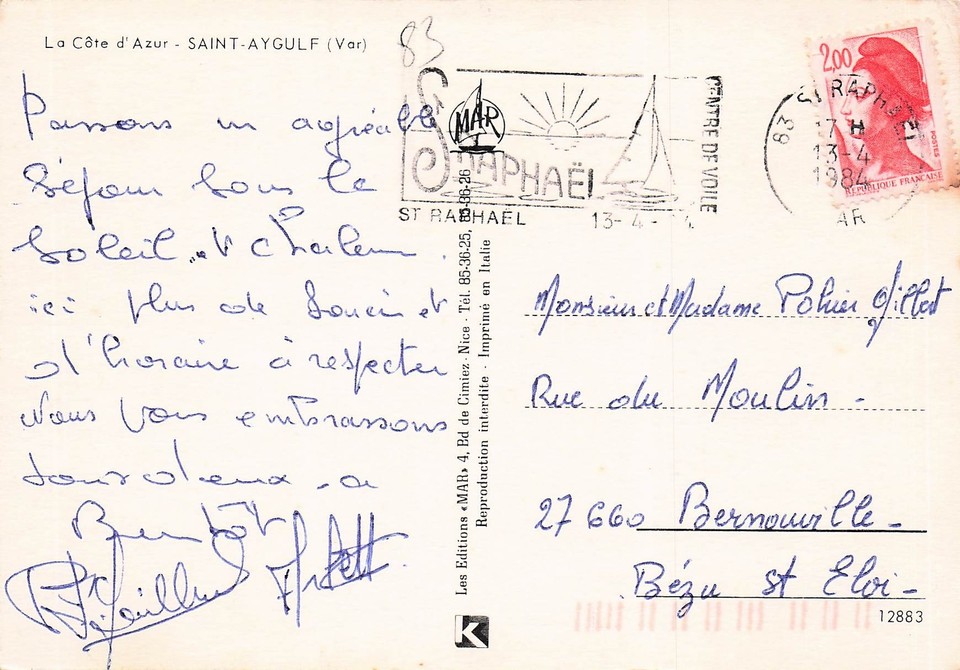 La Côte d'Azur - SAINT-AYGULF (Var)
83
Passons un agréable
Séjour Sous le
Soleil, et chaleur.
ici plus de Soucis et
d'horaire à respecter
Nous Vous embrassons
tous deux a
Bientôt
MAR
ST RAPHAËL
CENTRE DE VOILE
ST RAPHAËL 13-4-
83 ST RAPHAEL
17 H
13-4
1984
AR
2,00
POSTES
REPUBLIQUE FRANCAISE
Les Editions «MAR» 4, Bd de Cimiez - Nice - Tél. 85-36-25, 85-36-26
Reproduction interdite - Imprimé en Italie
Monsieur et Madame Pohier Gilbert
Rue du Moulin -
27 660 Bernouville -
Bézu St Eloi -
K
12883